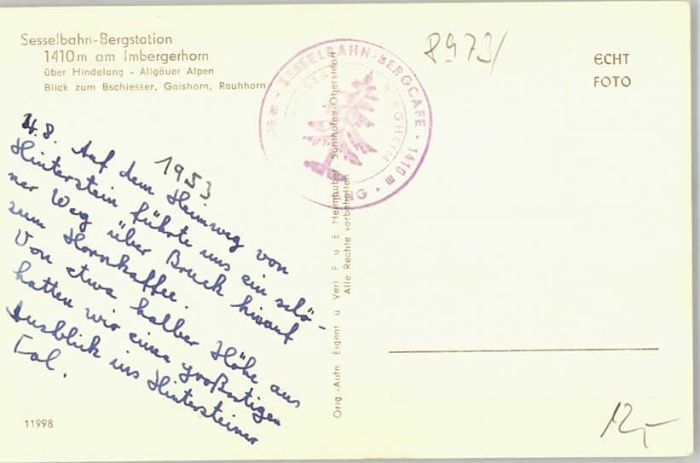 Sesselbahn-Bergstation
1410m am Imbergerhorn
über Hindelang - Allgäuer Alpen
Blick zum Bschiesser, Gaishorn, Rauhhorn
8973/
ECHT
FOTO
SESSELBAHN-BERGCAFE · 1410 m
1953
4.8. Auf dem Heimweg von
Hinterstein führte uns ein schö-
ner Weg über Bruck hinauf
zum Hornkaffee.
Von etwa halber Höhe aus
hatten wir einen großartigen
Ausblick ins Hintersteiner
Tal.
Orig.-Aufn. Eigent. u. Verl. F. u. E. Heimhuber Sonthofen Oberstdorf
Alle Rechte vorbehalten
11998
12,-